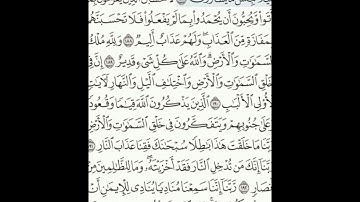 أَتَوا۟ وَّيُحِبُّونَ أَن يُحْمَدُوا۟ بِمَا لَمْ يَفْعَلُوا۟ فَلَا تَحْسَبَنَّهُم
بِمَفَازَةٍ مِّنَ ٱلْعَذَابِ ۖ وَلَهُمْ عَذَابٌ أَلِيمٌ ١٨٨ وَلِلَّهِ مُلْكُ
ٱلسَّمَٰوَٰتِ وَٱلْأَرْضِ ۗ وَٱللَّهُ عَلَىٰ كُلِّ شَىْءٍ قَدِيرٌ ١٨٩ إِنَّ فِى
خَلْقِ ٱلسَّمَٰوَٰتِ وَٱلْأَرْضِ وَٱخْتِلَٰفِ ٱلَّيْلِ وَٱلنَّهَارِ لَءَايَٰتٍ
لِّأُو۟لِى ٱلْأَلْبَٰبِ ١٩٠ ٱلَّذِينَ يَذْكُرُونَ ٱللَّهَ قِيَٰمًا وَقُعُودًا
وَعَلَىٰ جُنُوبِهِمْ وَيَتَفَكَّرُونَ فِى خَلْقِ ٱلسَّمَٰوَٰتِ وَٱلْأَرْضِ
رَبَّنَا مَا خَلَقْتَ هَٰذَا بَٰطِلًا سُبْحَٰنَكَ فَقِنَا عَذَابَ ٱلنَّارِ ١٩١
رَبَّنَآ إِنَّكَ مَن تُدْخِلِ ٱلنَّارَ فَقَدْ أَخْزَيْتَهُۥ ۖ وَمَا لِلظَّٰلِمِينَ مِنْ
أَنصَارٍ ١٩٢ رَّبَّنَآ إِنَّنَا سَمِعْنَا مُنَادِيًا يُنَادِى لِلْإِيمَٰنِ أَنْ